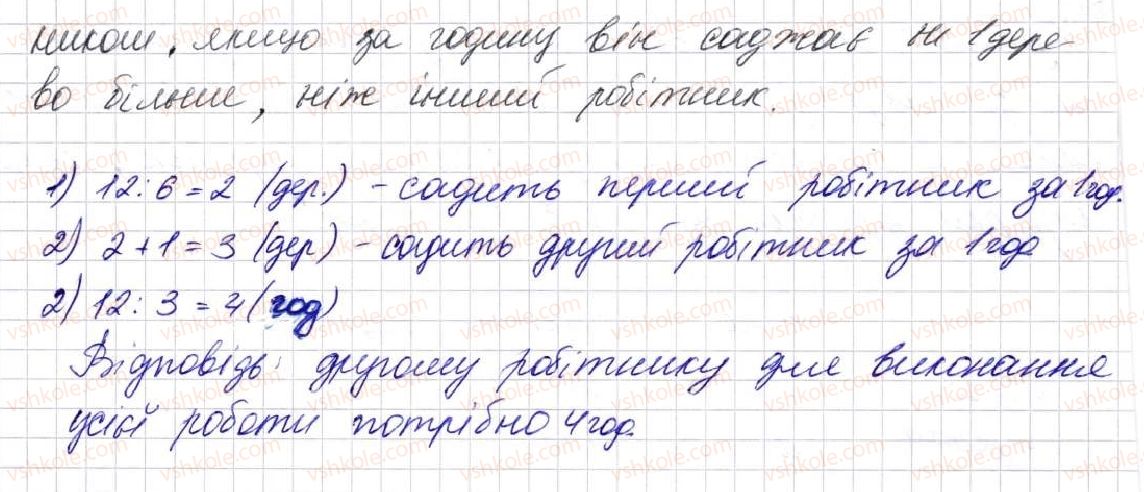 ником, якщо за годину він саджає на 1 дере-
во більше, ніж інший робітник.
1) 12:6=2 (дер.) - садить перший робітник за 1 год.
2) 2+1=3 (дер) - садить другий робітник за 1 год
2) 12:3=4 (год)
Відповідь: другому робітнику для виконання
усієї роботи потрібно 4 год.